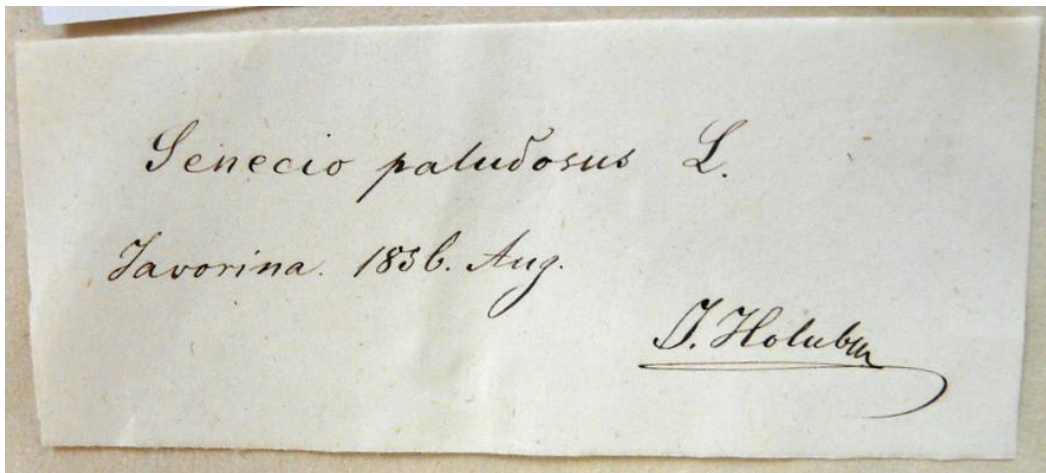 Senecio paludosus L.
Javorina. 1856. Aug.
J. Holuby